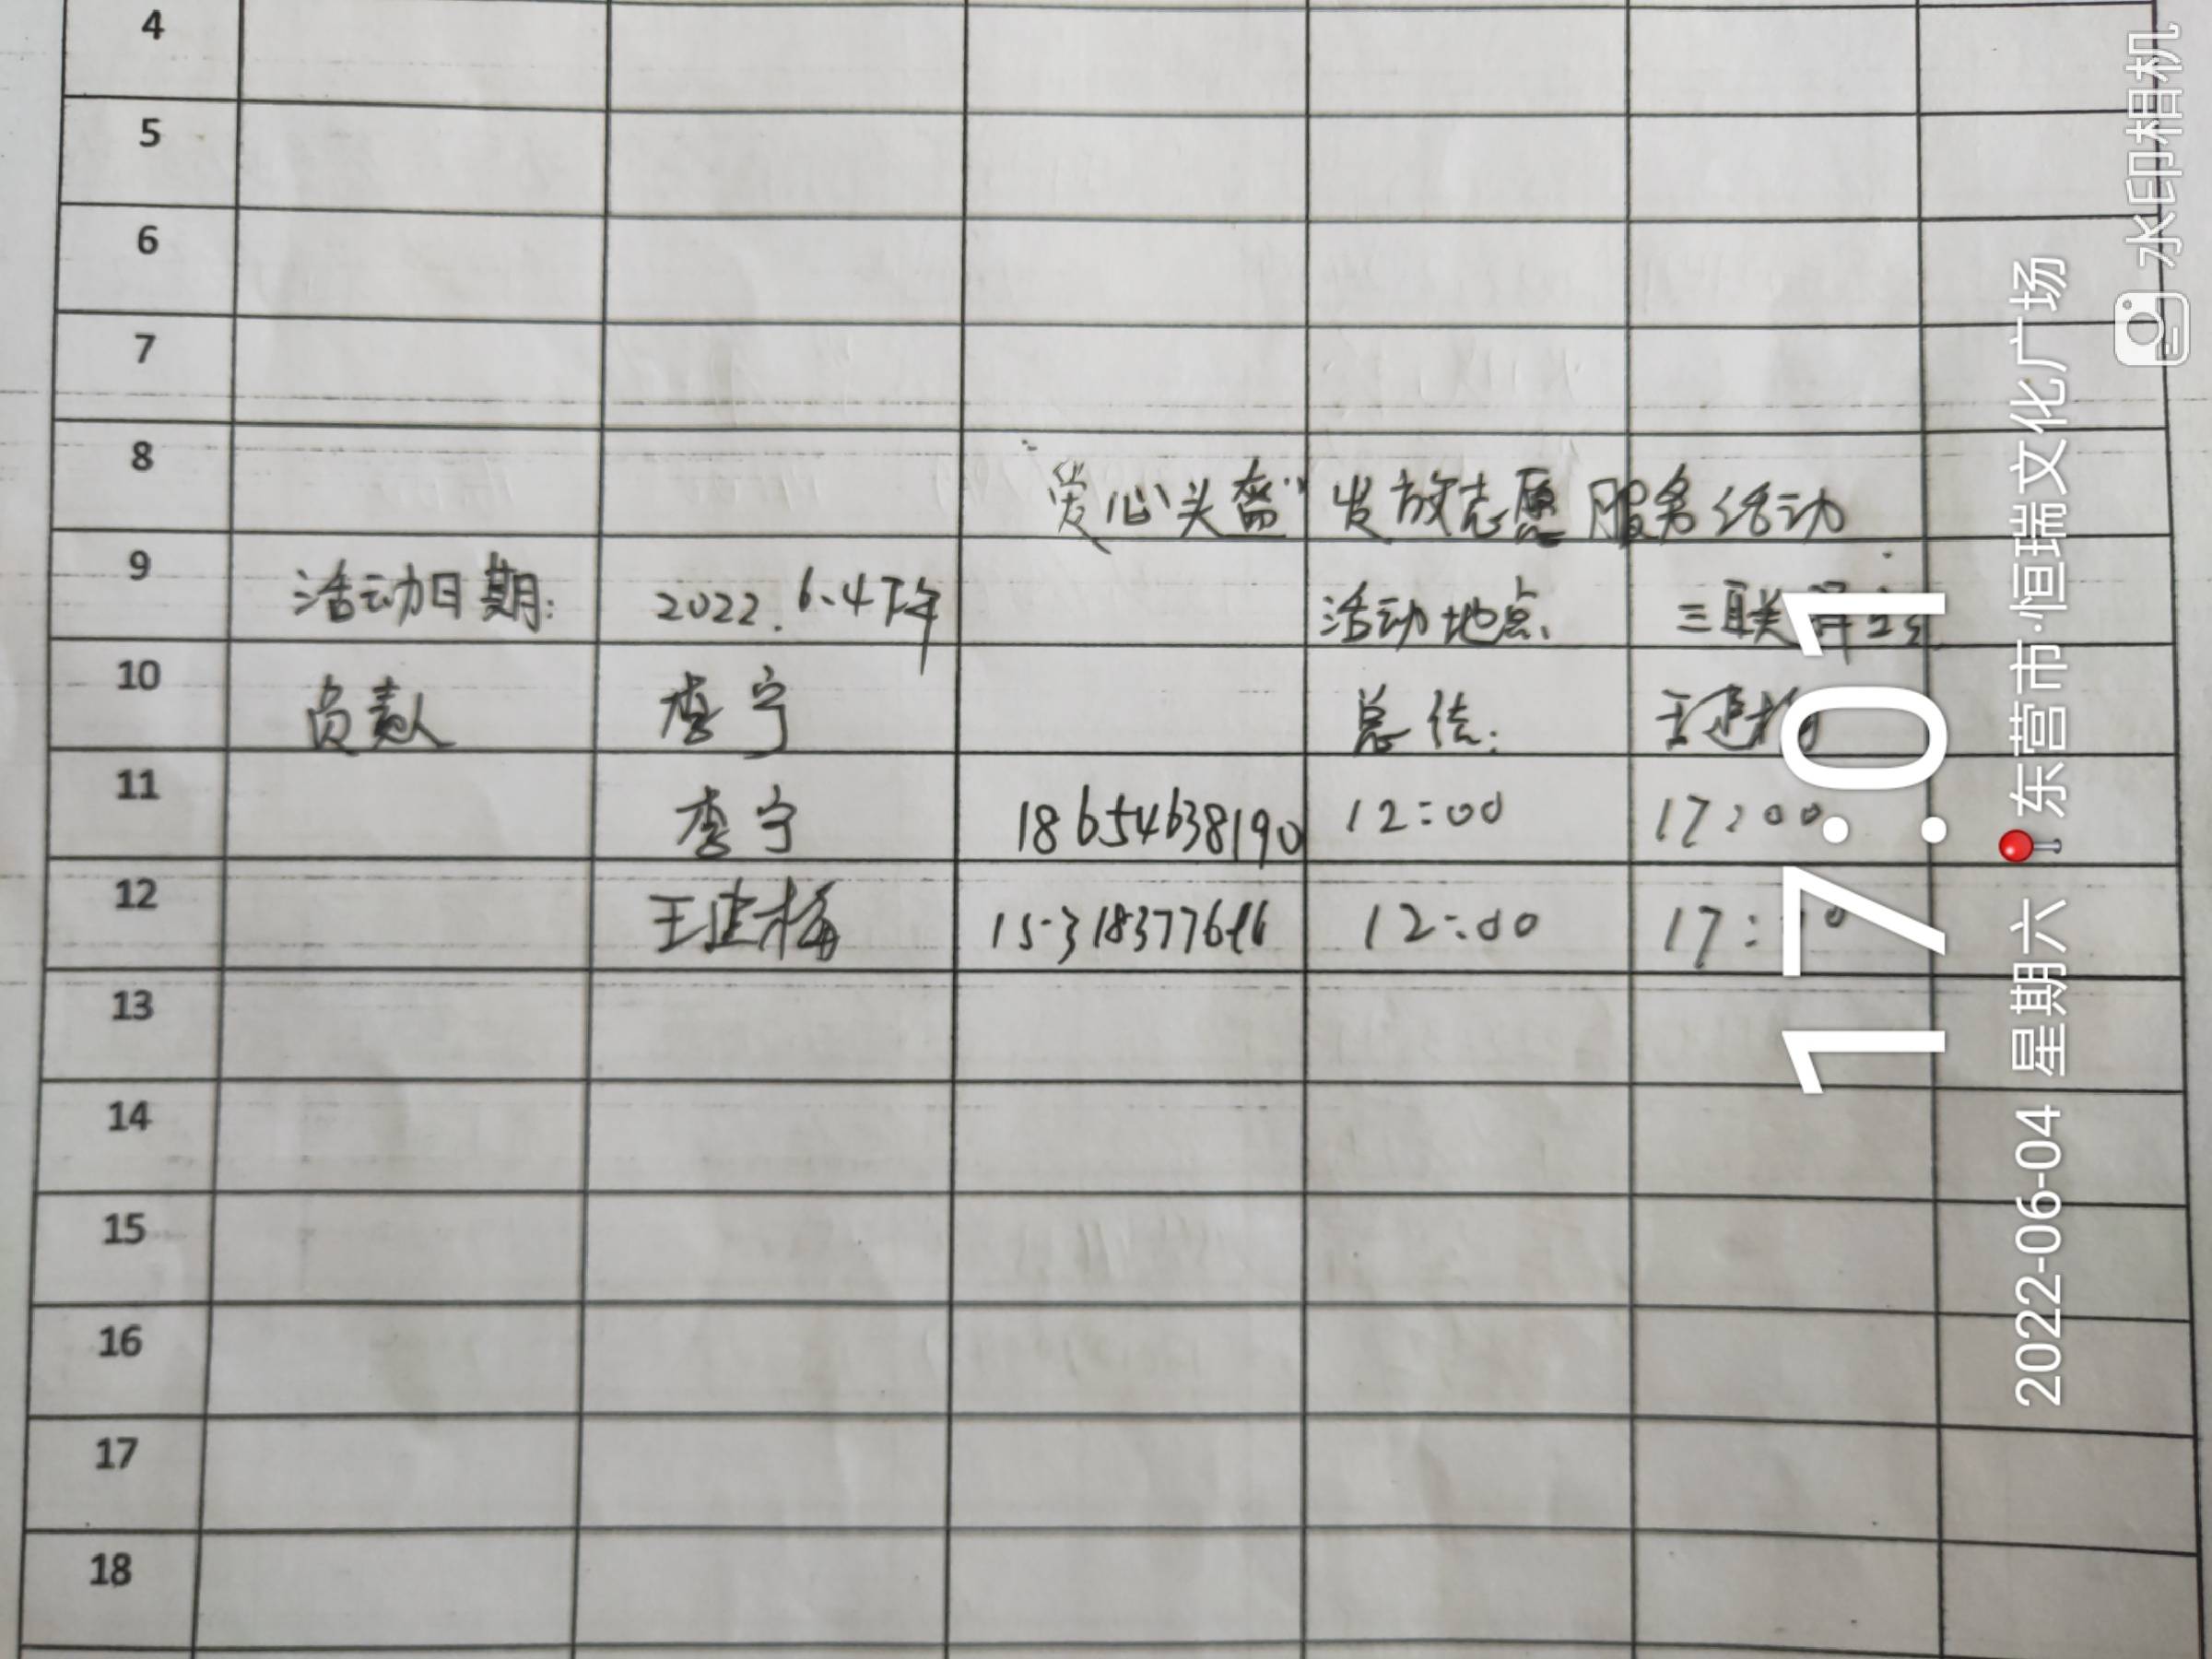 4
5
6
7
8 "爱心头盔"发放志愿服务活动
9 活动日期: 2022.6.4下午 活动地点 三联
10 负责人 李宁 总结: 王建梅
11 李宁 18654638190 12:00 17:00
12 王建梅 12:00 17:
13
14
15
16
17
18
17:01
2022-06-04 星期六 东营市·恒瑞文化广场
水印相机